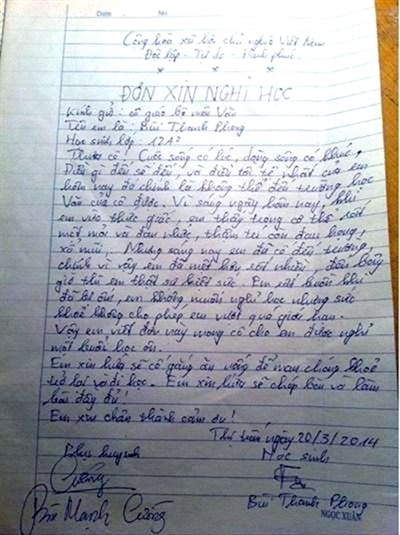 Date No.
Cộng hòa xã hội chủ nghĩa Việt Nam
Độc lập - Tự do - Hạnh phúc.
ĐƠN XIN NGHỈ HỌC
Kính gửi: cô giáo bộ môn Văn
Tên em là: Bùi Thanh Phong
Học sinh lớp: 12A2
Thưa cô! Cuộc sống có lúc, dòng sông có khúc,
Điều gì đến sẽ đến, và điều tồi tệ nhất của em
hôm nay đó chính là không thể đến trường học
Văn của cô được. Vì sáng ngày hôm nay, khi
em vừa thức giấc, em thấy trong cơ thể rất
mệt mỏi và đau nhức, thậm chí còn đau họng,
xổ mũi. Nhưng sáng nay em đã cố đến trường,
chính vì vậy em đã mệt hơn rất nhiều, đến bây
giờ thì em thật sự kiệt sức. Em rất buồn khi
đã bị ốm, em không muốn nghỉ học nhưng sức
khoẻ không cho phép em vượt quá giới hạn.
Vậy em viết đơn này mong cô cho em được nghỉ
một buổi học ôn.
Em xin hứa sẽ cố gắng ăn uống để mau chóng khoẻ
trở lại và đi học. Em xin hứa sẽ chép bài và làm
bài đầy đủ!
Em xin chân thành cảm ơn!
ngày 20/3/2014
Phụ huynh Học sinh
Cường
Bùi Mạnh Cường Bùi Thanh Phong
NGỌC XUÂN